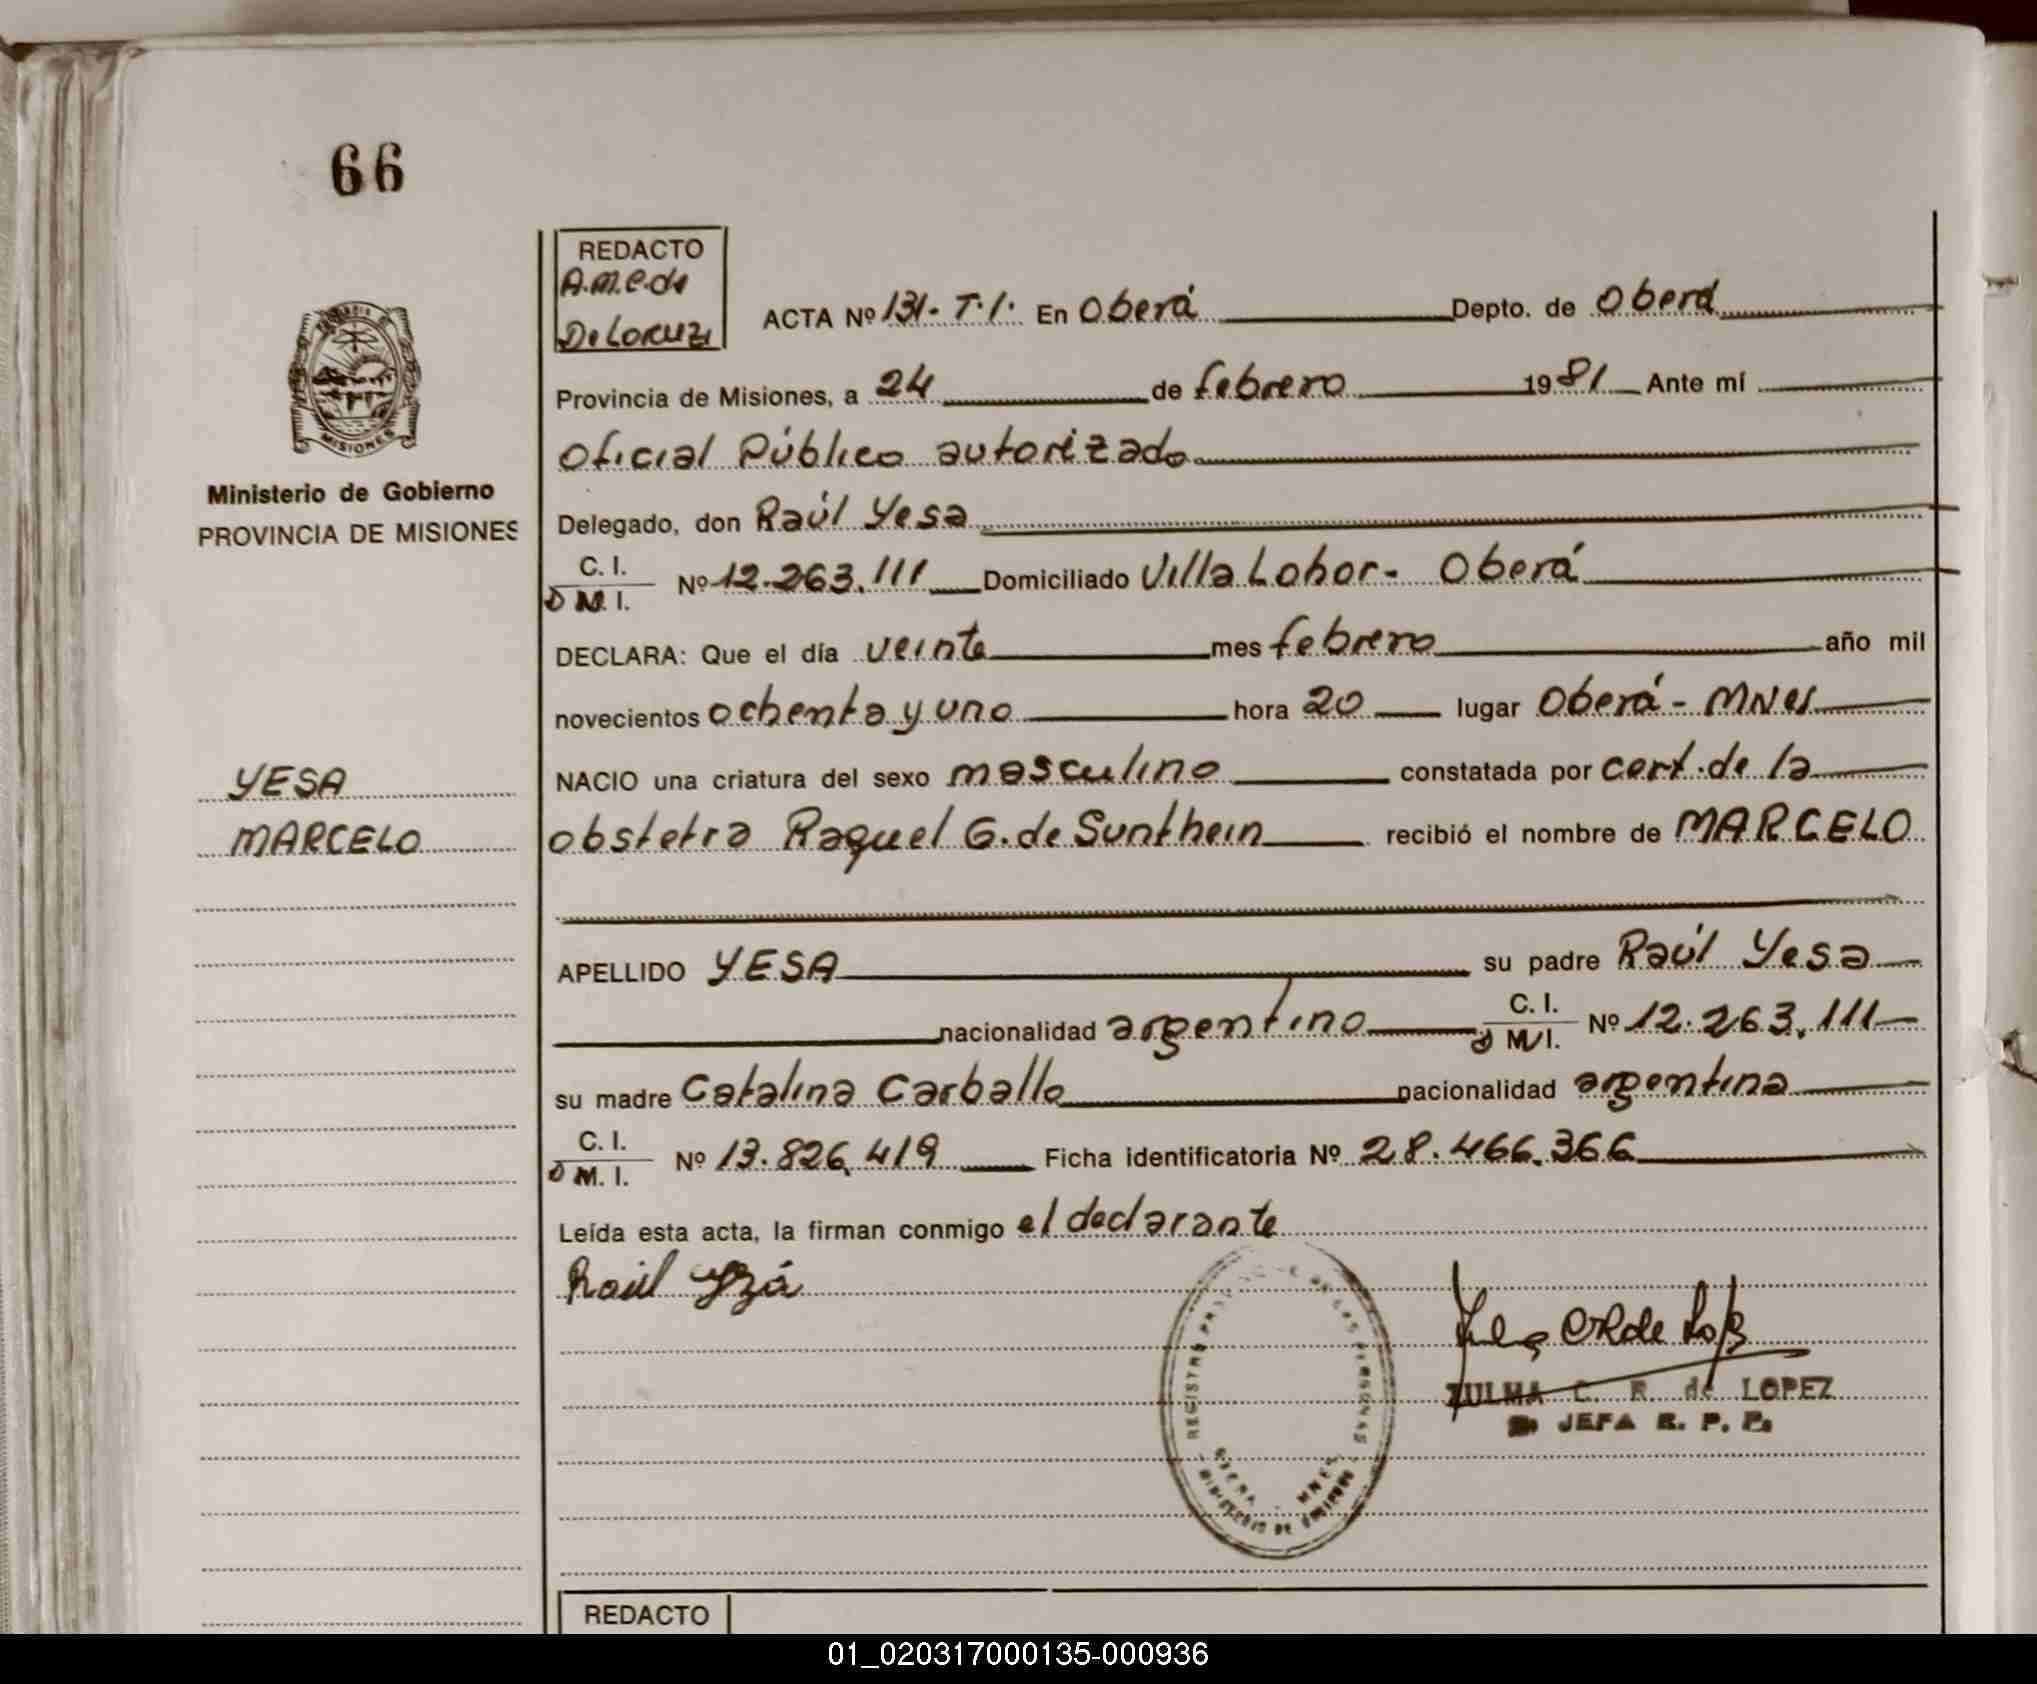 66
REDACTO
A.M.C. de
De Lorenzi
ACTA Nº 131- T.I. En Oberá Depto. de Oberá
Provincia de Misiones, a 24 de febrero 1981 Ante mí
Oficial Público autorizado
MISIONES
Ministerio de Gobierno
PROVINCIA DE MISIONES
Delegado, don Raúl Yesa
C. I.
D M. I. Nº 12.263.111 Domiciliado Villa Lohor- Oberá
DECLARA: Que el día veinte mes febrero año mil
novecientos ochenta y uno hora 20 lugar Oberá - MNes
YESA
MARCELO
NACIO una criatura del sexo masculino constatada por cert. de la
obstetra Raquel G. de Sunthein recibió el nombre de MARCELO
APELLIDO YESA su padre Raúl Yesa
nacionalidad argentino C. I. D M. I. Nº 12.263.111
su madre Catalina Carballo nacionalidad argentina
C. I.
D M. I. Nº 13.826.419 Ficha identificatoria Nº 28.466.366
Leída esta acta, la firman conmigo el declarante
Raúl Yzá
ZULMA C. R. de LOPEZ
JEFA R. P. P.
REDACTO
01_020317000135-000936